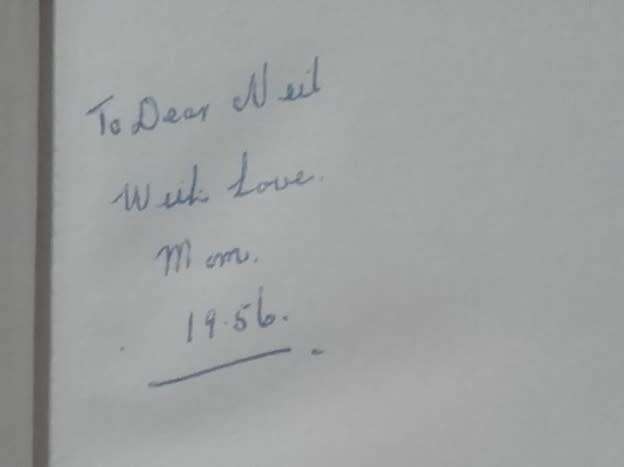 To Dear Neil
With Love.
Mom.
19.56.